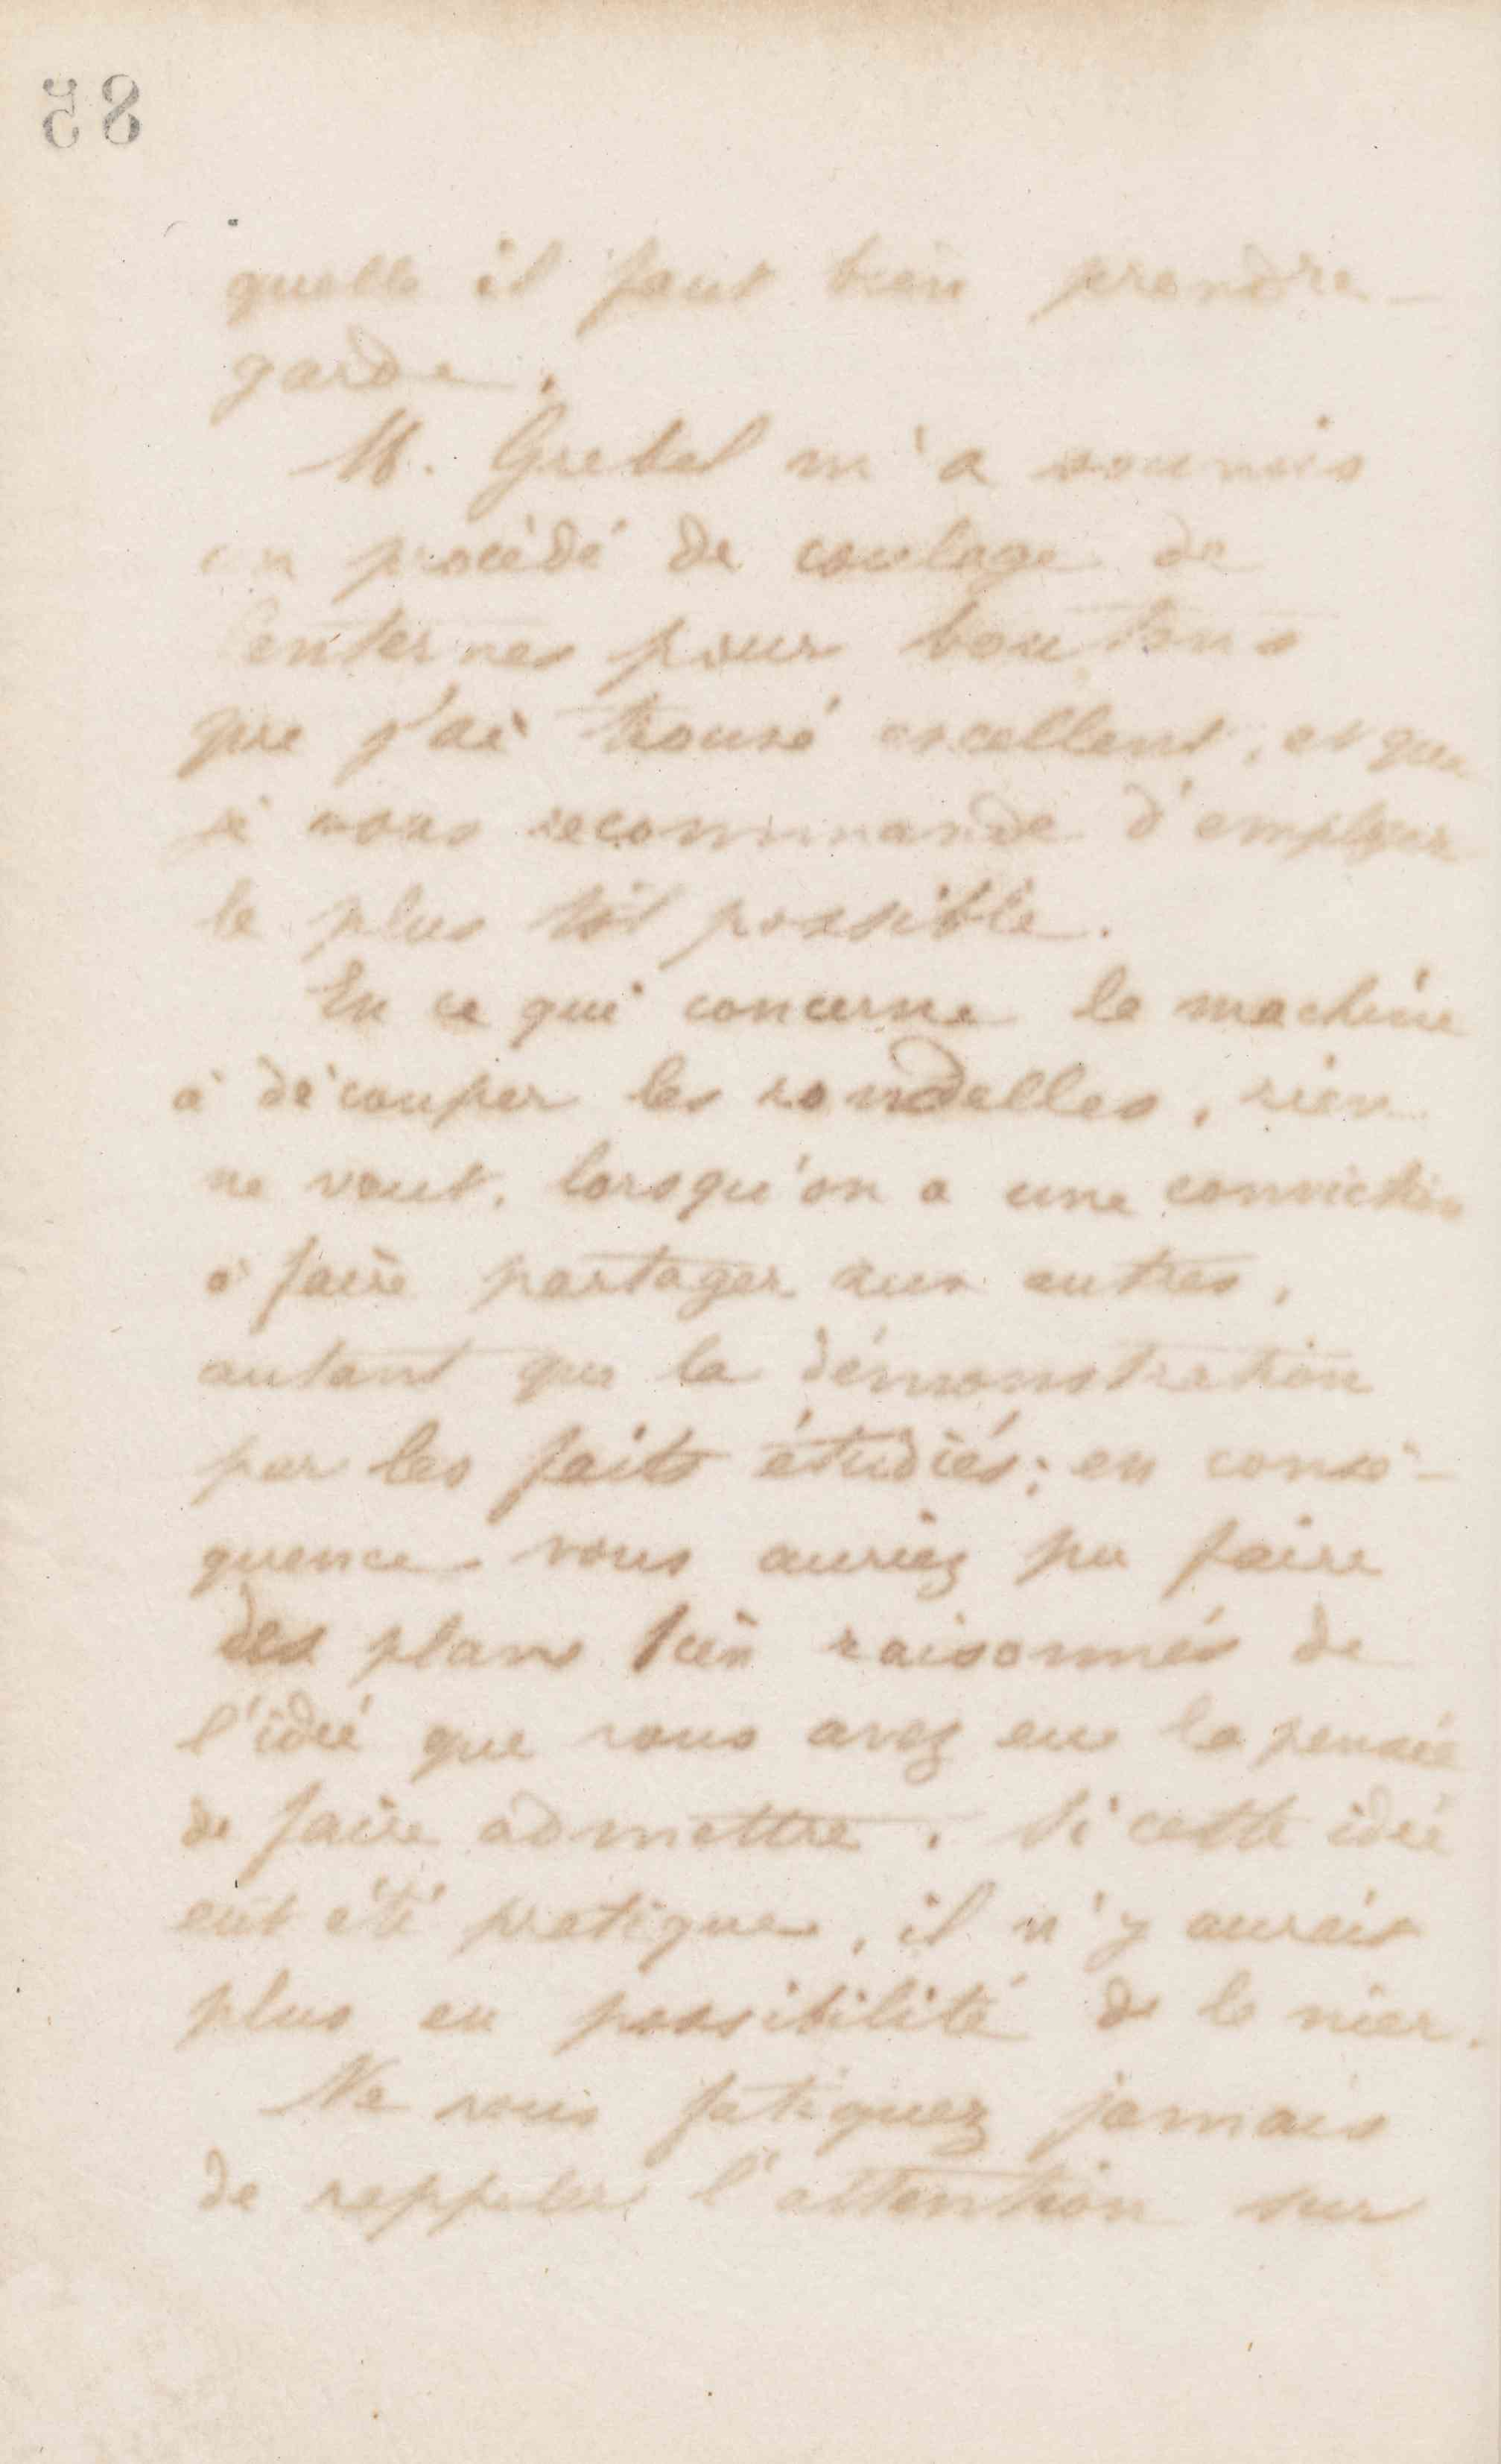 58
quelle il faut bien prendre
garde.
M. Grebel m'a soumis
un procédé de coulage de
lanternes pour boutons
que j'ai trouvé excellent, et que
je vous recommande d'employer
le plus tôt possible.
En ce qui concerne la machine
à découper les rondelles, rien
ne vaut, lorsqu'on a une conviction
à faire partager aux autres,
autant que la démonstration
par les faits étudiés; en consé-
quence vous auriez pu faire
des plans bien raisonnés de
l'idée que vous avez eu la pensée
de faire admettre. Si cette idée
eut été pratique, il n'y aurait
plus eu possibilité de le nier.
Ne vous fatiguez jamais
de rappeler l'attention sur